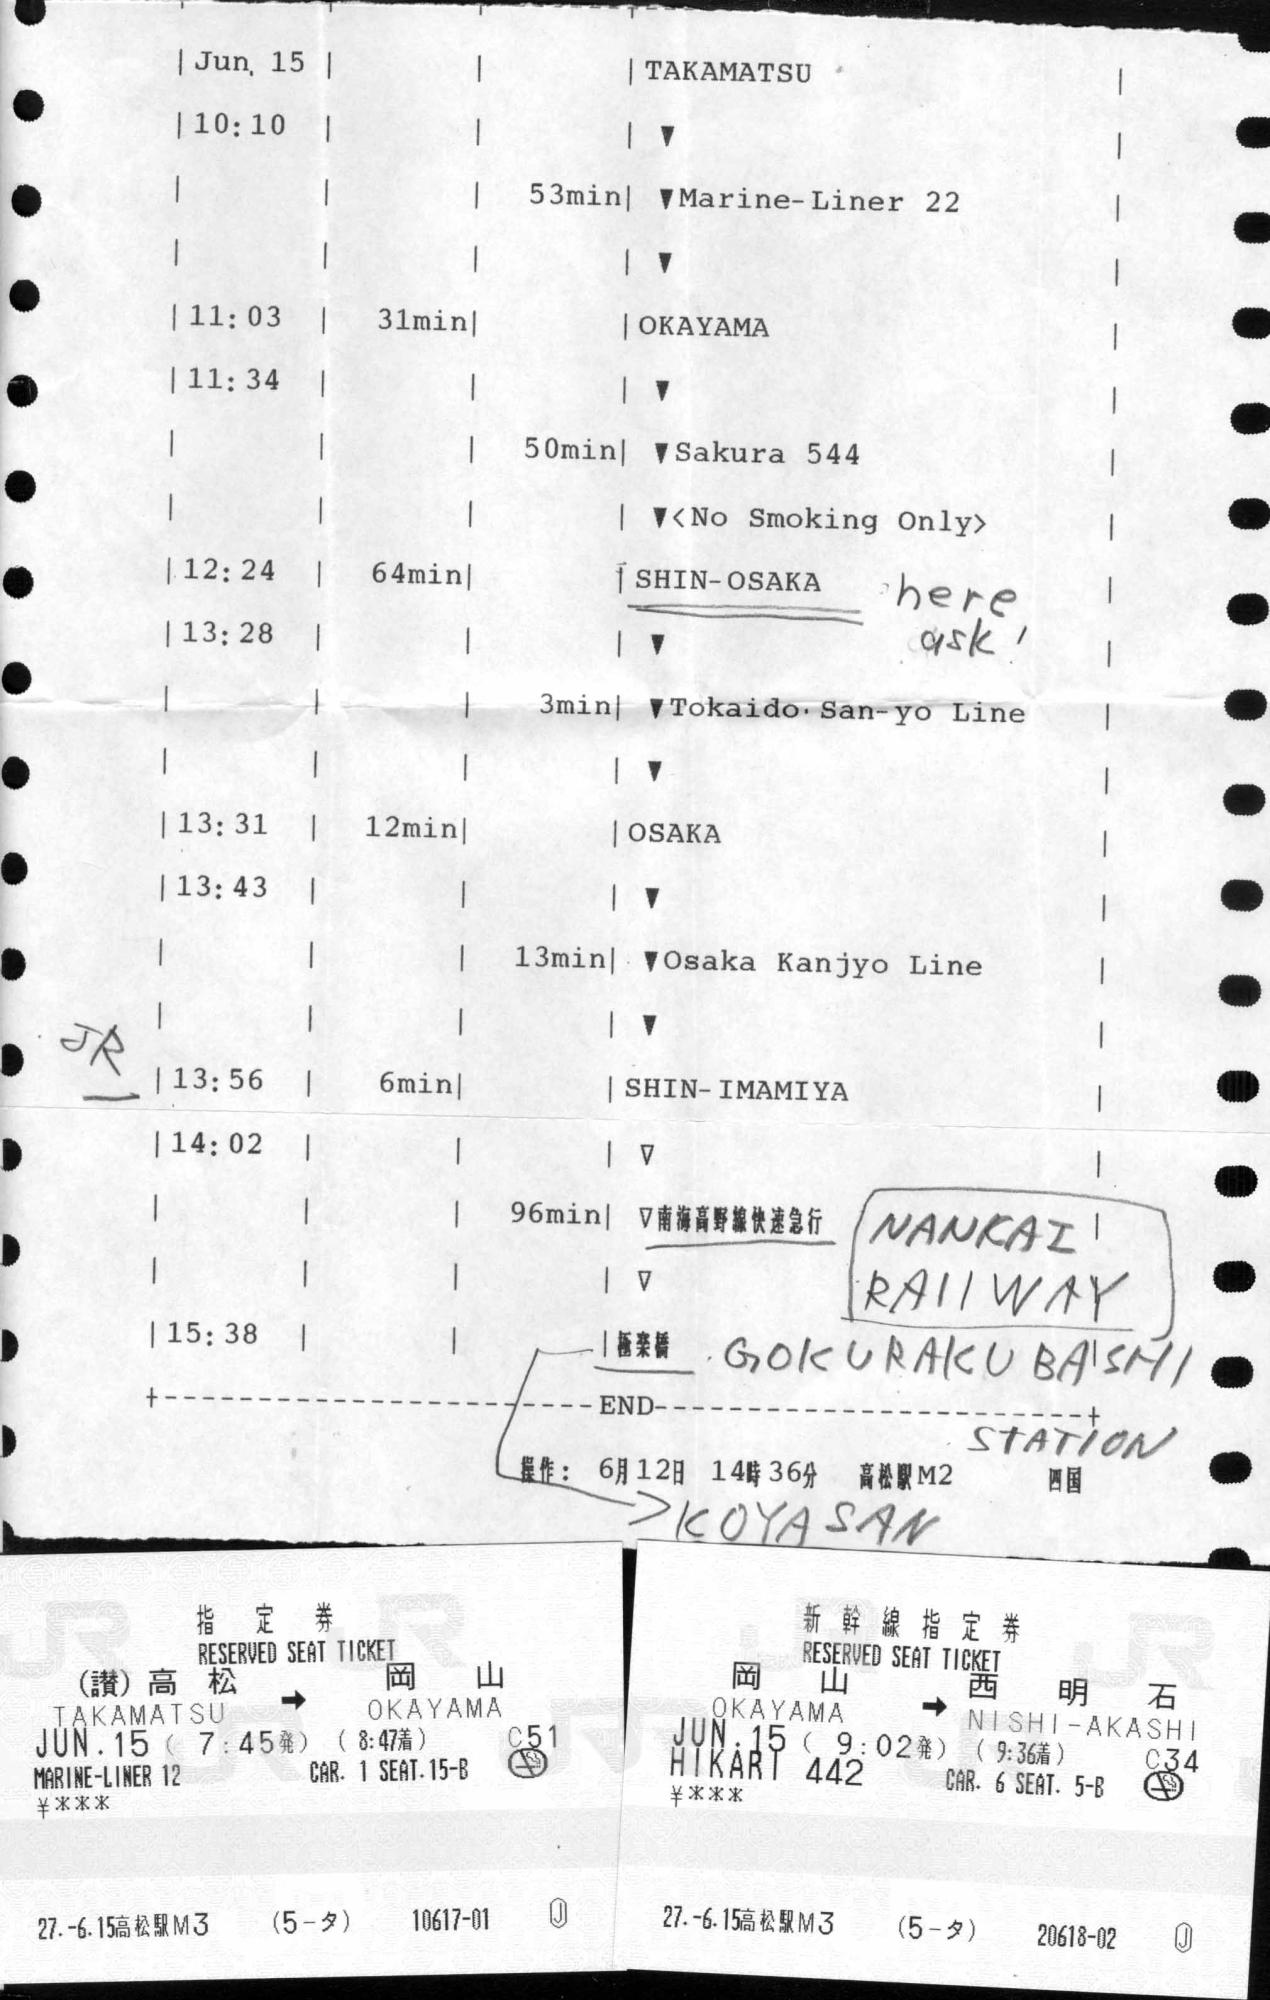 Jun. 15 TAKAMATSU
10:10 ▼
53min ▼Marine-Liner 22
▼
11:03 31min OKAYAMA
11:34 ▼
50min ▼Sakura 544
▼<No Smoking Only>
12:24 64min SHIN-OSAKA here
ask!
13:28 ▼
3min ▼Tokaido·San-yo Line
▼
13:31 12min OSAKA
13:43 ▼
13min ▼Osaka Kanjyo Line
▼
JR
13:56 6min SHIN-IMAMIYA
14:02 ▽
96min ▽南海高野線快速急行 NANKAI
▽ RAILWAY
15:38 極楽橋 GOKURAKUBASHI
END
STATION
操作: 6月12日 14時36分 高松駅M2 四国
KOYASAN
指定券
RESERVED SEAT TICKET
(讃)高松 → 岡山
TAKAMATSU OKAYAMA
JUN.15 ( 7:45発) ( 8:47着) C51
MARINE-LINER 12 CAR. 1 SEAT.15-B
¥***
27.-6.15高松駅M3 (5-タ) 10617-01 J
新幹線指定券
RESERVED SEAT TICKET
岡山 → 西明石
OKAYAMA NISHI-AKASHI
JUN.15 ( 9:02発) ( 9:36着) C34
HIKARI 442 CAR. 6 SEAT. 5-B
¥***
27.-6.15高松駅M3 (5-タ) 20618-02 J